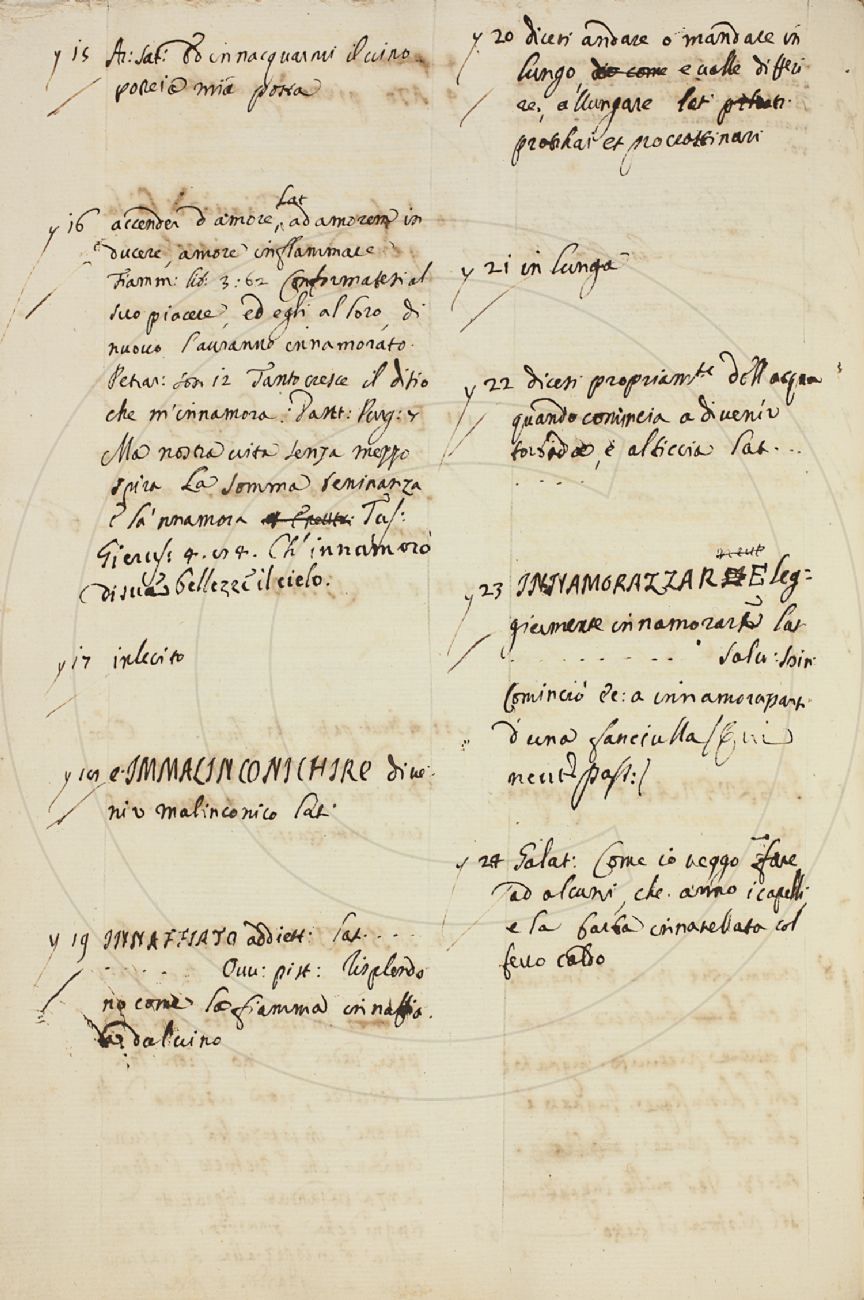 y 15 Ar: Sat: Ed innacquarmi il vino
mia possa
y 16 accender d'amore, Lat
ad amorem in
ducere, amore inflammare
Fiamm: lib: 3: 62 Conformatesi al
suo piacere, ed egli al loro, di
nuovo l'auranno innamorato.
Petrar: Son 12 Tanto cresce il disio
che m'innamora. Dant: Purg: 7
Ma nostra vita senza mezzo
spira La somma beninanza
e la 'nnamora Tas:
Gierus: 4. 84. Ch'innamorò
di sua bellezze il cielo.
y 17 inlecito
y 18 e IMMALINCONICHIRE dive
nir malinconico Lat:
y 19 INNAFFIATO addiett: Lat. . . .
. . . . . Ovu: pist: Risplendo
no come la fiamma innaffia
dal vino
y 20 dicesi andare o mandare in
lungo, e valle differi
re, allungare lat:
et procrastinari
y 21 in lunga
y 22 dicesi propriamte dell'acqua
quando comincia a divenir
torbida, e alticcia Lat. . . .
. . . . .
y 23 INNAMORAZZARE leg=
giermente innamorarsi Lat
. . . . . . . . Salv: Spin:
Cominciò &c: a innamorazzarsi
d'una fanciulla (Qui
neut: pass:)
y 24 Galat: Come io veggo fare
ad alcuni, che anno i capelli,
e la barba innanellata col
ferro caldo